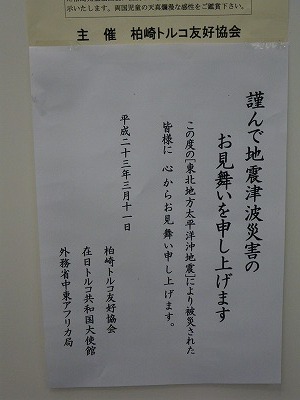 示いたします。両国児童の天真爛漫な感性をご鑑賞下さい。
主　催　柏崎トルコ友好協会
謹んで地震津波災害の
お見舞いを申し上げます
この度の［東北地方太平洋沖地震］により被災された
皆様に　心からお見舞い申し上げます。
平成二十三年三月十一日
柏崎トルコ友好協会
在日トルコ共和国大使館
外務省中東アフリカ局